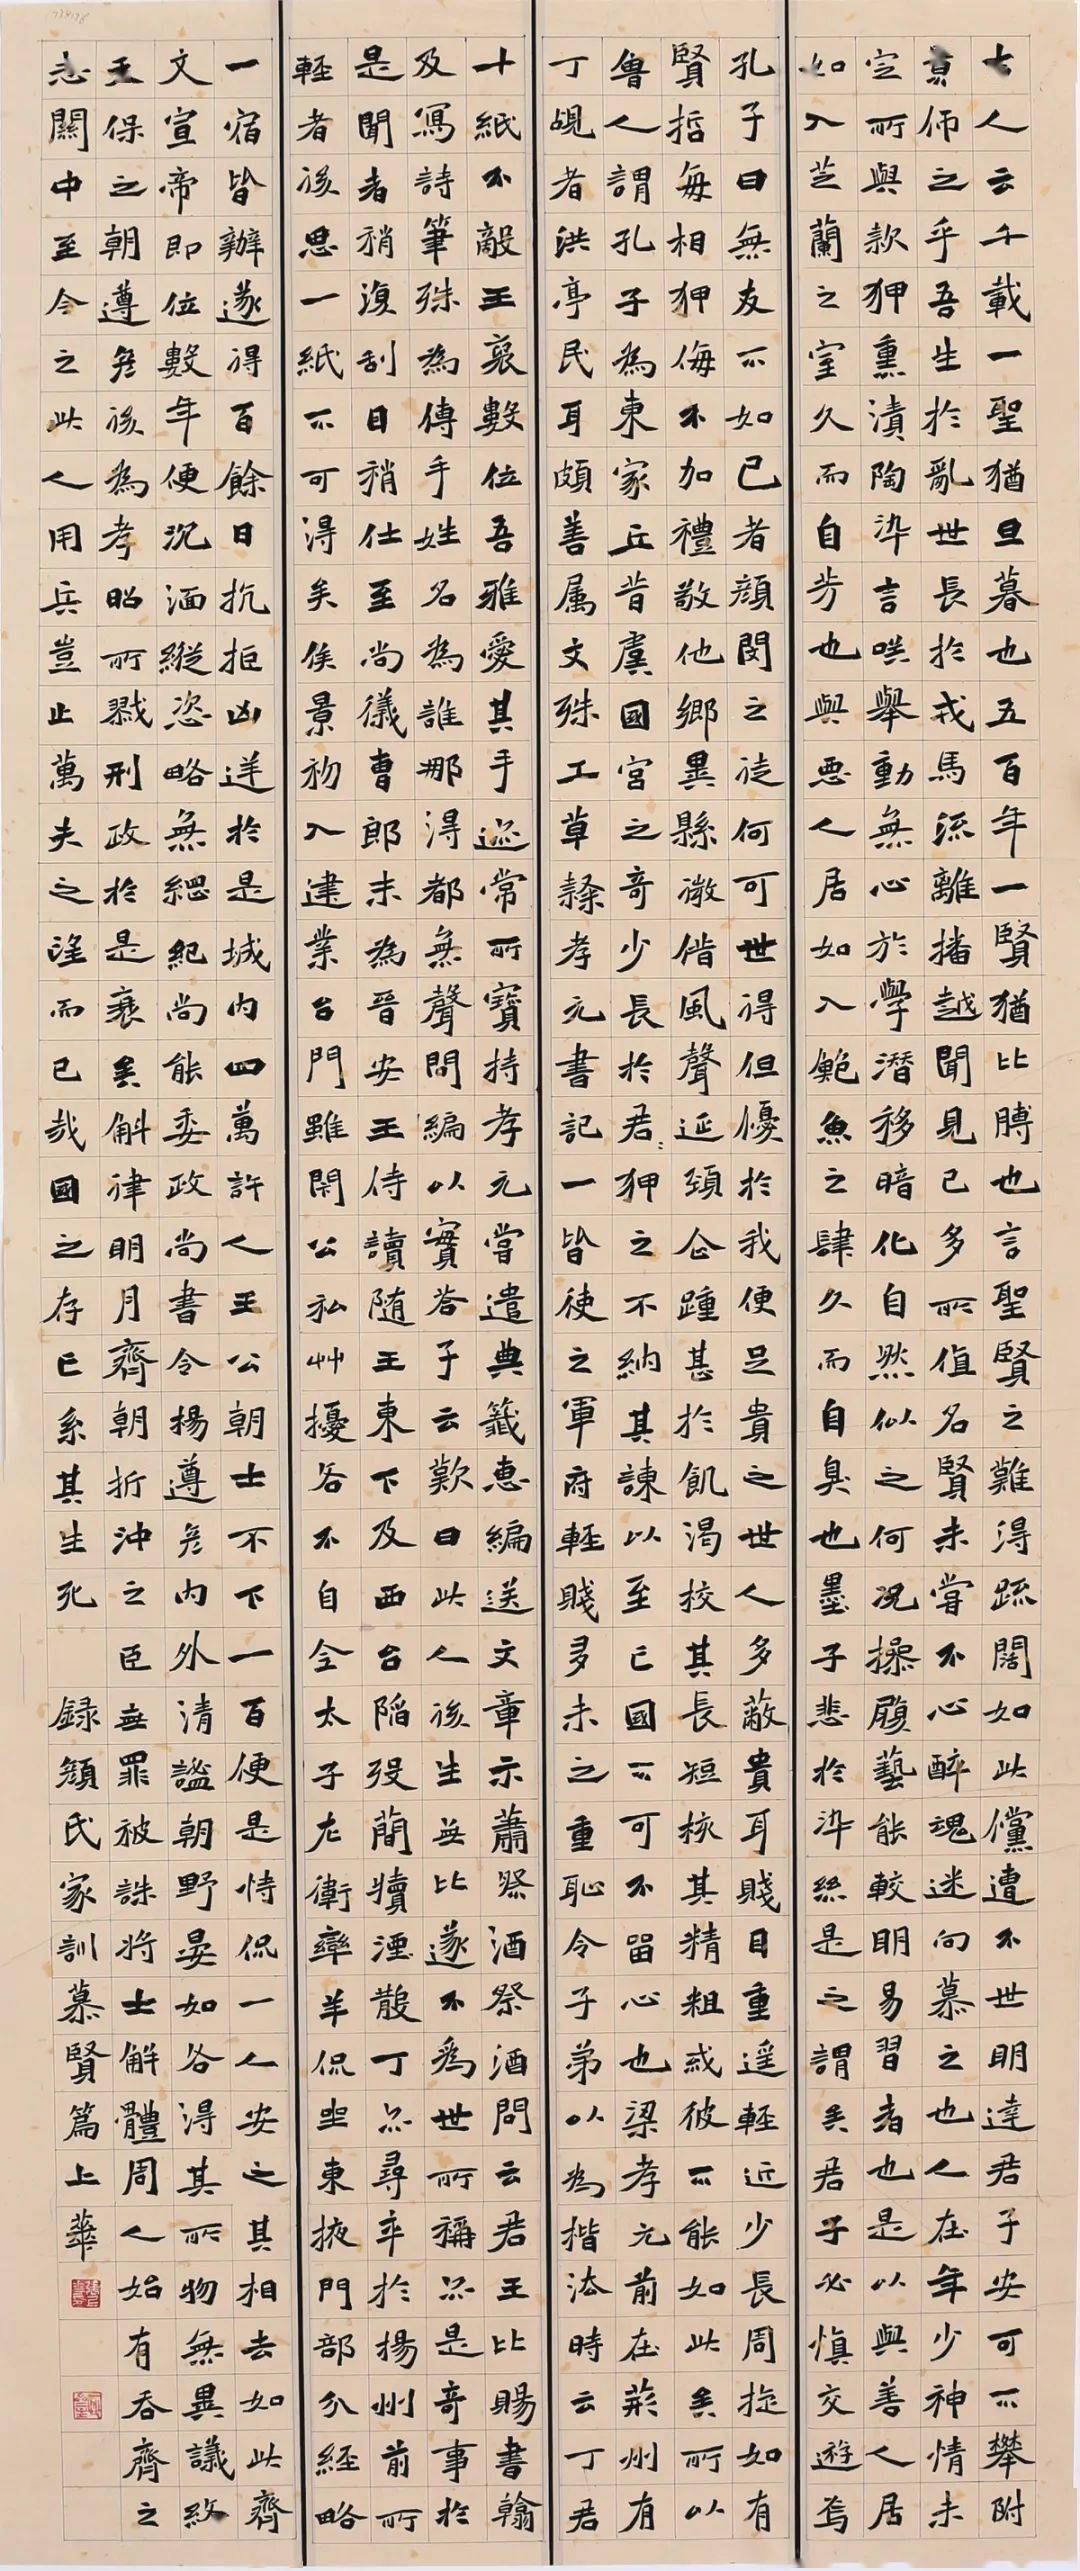 古人云千載一聖猶旦暮也五百年一賢猶比膊也言聖賢之難得疏闊如此儻遭不世明達君子安可不攀附
景仰之乎吾生於亂世長於戎馬流離播越聞見已多所值名賢未嘗不心醉魂迷向慕之也人在年少神情未
定所與款狎熏漬陶染言咲舉動無心於學潛移暗化自然似之何況操履藝能較明易習者也是以與善人居
如入芝蘭之室久而自芳也與惡人居如入鮑魚之肆久而自臭也墨子悲於染絲是之謂矣君子必慎交遊焉
孔子曰無友不如己者顏閔之徒何可世得但優於我便足貴之世人多蔽貴耳賤目重遥輕近少長周旋如有
賢哲每相狎侮不加禮敬他鄉異縣微借風聲延頸企踵甚於飢渴校其長短核其精粗或彼不能如此矣所以
魯人謂孔子為東家丘昔虞國宮之奇少長於君:狎之不納其諫以至亡國不可不留心也梁孝元前在荊州有
丁覘者洪亭民耳頗善属文殊工草隸孝元書記一皆使之軍府輕賤多未之重恥令子弟以為楷法時云丁君
十紙不敵王褒數位吾雅愛其手迹常所寶持孝元嘗遣典籤惠編送文章示蕭祭酒祭酒問云君王比賜書翰
及寫詩筆殊為傳手姓名為誰那得都無聲問編以實答子云歎曰此人後生無比遂不為世所稱亦是奇事於
是聞者稍復刮目稍仕至尚儀曹郎末為晉安王侍讀隨王東下及西台陷歿簡牘湮散丁亦尋卒於揚州前所
輕者後思一紙不可得矣侯景初入建業台門雖閉公私艸擾各不自全太子左衛率羊侃坐東掖門部分經略
一宿皆辦遂得百餘日抗拒凶逆於是城內四萬許人王公朝士不下一百便是恃侃一人安之其相去如此齊
文宣帝即位數年便沉湎縱恣略無綱紀尚能委政尚書令楊遵彥內外清謐朝野晏如各得其所物無異議終
天保之朝遵彥後為孝昭所戮刑政於是衰矣斛律明月齊朝折沖之臣無罪被誅將士解體周人始有吞齊之
志關中至今之此人用兵豈止萬夫之望而已哉國之存亡系其生死 錄顏氏家訓慕賢篇上華